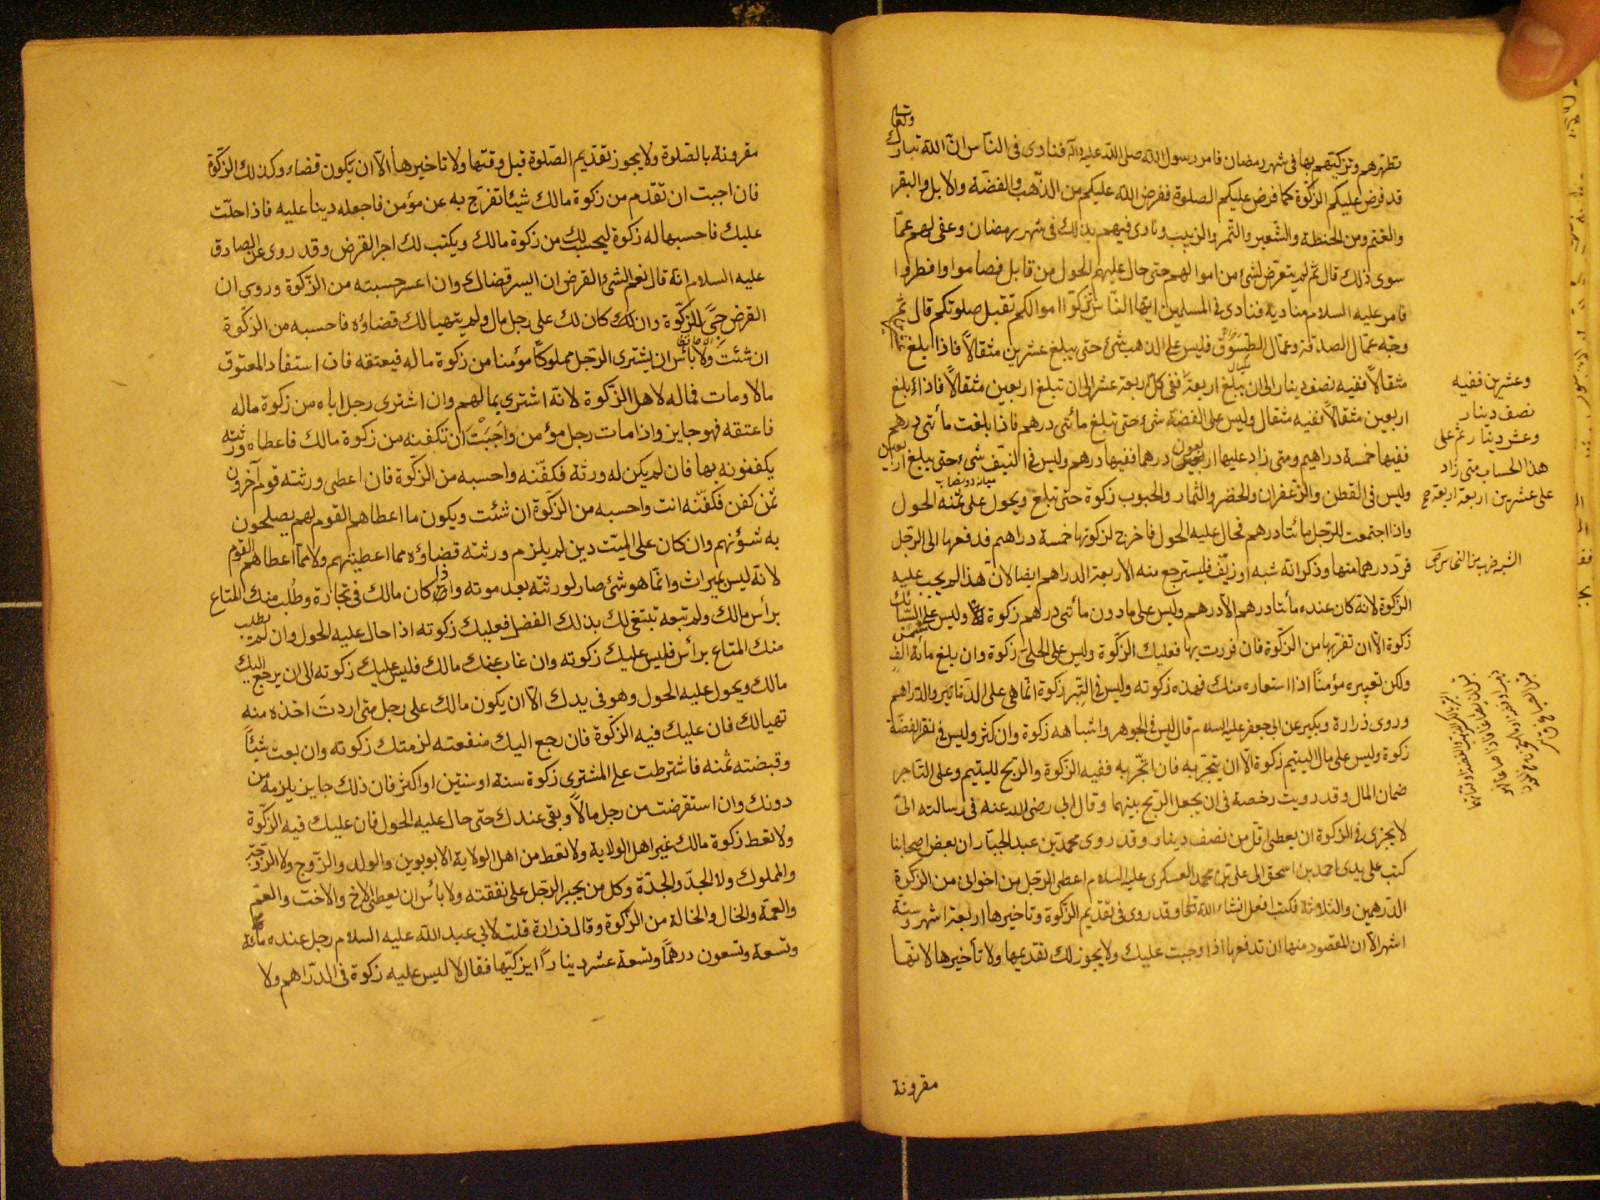 تطهرهم وتزكيهم بها في شهر رمضان فامر رسول الله صلى الله عليه وآله فنادى في الناس ان الله تبارك وتعالى
قد فرض عليكم الزكوة كما فرض عليكم الصلوة ففرض الله عليكم من الذهب والفضة والابل والبقر
والغنم ومن الحنطة والشعير والتمر والزبيب ونادى فيهم بذلك في شهر رمضان وعفى لهم عما
سوى ذلك قال ثم لم يتعرض لشئ من اموالهم حتى حال عليهم الحول من قابل فصاموا وافطروا
فامر عليه السلام مناديه فنادى في المسلمين ايها الناس زكوا اموالكم تقبل صلوتكم قال ثم
وجه عمال الصدقة وعمال الطسوق فليس على الذهب شئ حتى يبلغ عشرين مثقالا فاذا بلغ
مثقالا ففيه نصف دينار الى ان يبلغ اربعة ففي كل اربعة عشر الى ان تبلغ اربعين مثقالا فاذا بلغ
اربعين مثقالا ففيه مثقال وليس على الفضة شئ حتى تبلغ مأتي درهم فاذا بلغت مأتي درهم
ففيها خمسة دراهم ومتى زاد عليها اربعون درهما ففيها درهم وليس في النيف شئ حتى يبلغ اربعين
وليس في القطن والزعفران والخضر والثمار والحبوب زكوة حتى تبلغ ويحول على ثمنه الحول
واذا اجتمعت للرجل مائتا درهم فحال عليه الحول فاخرج لزكوتها خمسة دراهم فدفعها الى الرجل
فرد درهما منها وذكر انه شبه او زيف فليسترجع منه الاربعة الدراهم ايضا لان هذا لم يجب عليه
الزكوة لانه كان عنده مأتا درهم الا درهم وليس على ما دون مأتي درهم زكوة وليس على السبائك
زكوة الا ان تفر بها من الزكوة فان فررت بها فعليك الزكوة وليس على الحلى زكوة وان بلغ مائة الف
ولكن تعيره مؤمنا اذا استعاره منك فهذه زكوته وليس في التبر زكوة انما هي على الدنانير والدراهم
وروى زرارة وبكير عن ابي جعفر عليه السلام قال ليس في الجوهر واشباهه زكوة وان كثر وليس في نقر الفضة
زكوة وليس على مال اليتيم زكوة الا ان يتجر به فان اتجر به ففيه الزكوة والربح لليتيم وعلى التاجر
ضمان المال وقد رويت رخصة في ان يجعل الربح بينهما وقال ابي رضى الله عنه في رسالته الى
لا يجزى في الزكوة ان يعطى اقل من نصف دينار وقد روى محمد بن عبد الجبار ان بعض اصحابنا
كتب على يدى احمد بن اسحق الى علي بن محمد العسكرى عليه السلام اعطى الرجل من اخوانى من الزكوة
الدرهمين والثلاثة فكتب افعل انشاء الله تعالى وقد روى في تقديم الزكوة وتاخيرها اربعة اشهر وستة
اشهر الا ان المقصود منها ان تدفعها اذا وجبت عليك ولا يجوز لك تقديمها ولا تأخيرها لانها
مقرونة
وعشرين ففيه
نصف دينار
وعشر دينار ثم على
هذا الحساب متى زاد
على عشرين اربعة اربعة
الشبه ضرب من النحاس
مقرونة بالصلوة ولا يجوز تقديم الصلوة قبل وقتها ولا تاخيرها الا ان تكون قضاء وكذلك الزكوة
فان اجبت ان تقدم من زكوة مالك شيئا تفرج به عن مؤمن فاجعله دينا عليه فاذا حلت
عليك فاحسبها له زكوة ليحسب لك من زكوة مالك ويكتب لك اجر القرض وقد روى عن الصادق
عليه السلام انه قال نعم الشئ القرض ان ايسر قضاك وان اعسر حسبته من الزكوة وروى ان
القرض حمى للزكوة وان كان لك على رجل مال ولم يتهيا لك قضاؤه فاحسبه من الزكوة
ان شئت ولا بأس ان يشترى الرجل مملوكا مؤمنا من زكوة ماله فيعتقه فان استفاد المعتوق
مالا ومات فماله لاهل الزكوة لانه اشترى بمالهم وان اشترى رجل اباه من زكوة ماله
فاعتقه فهو جايز واذا مات رجل مؤمن واجببت ان تكفنه من زكوة مالك فاعطاه ورثته
يكفنونه بها فان لم يكن له ورثة فكفنه واحسبه من الزكوة فان اعطى ورثته قوم آخرون
ثمن كفن فكفنه انت واحسبه من الزكوة ان شئت ويكون ما اعطاهم القوم لهم يصلحون
به شؤنهم وان كان على الميت دين لم يلزم ورثته قضاؤه مما اعطيتهم ولا مما اعطاهم القوم
لانه ليس بميراث وانما هو شئ صار لورثته بعد موته واذا كان مالك في تجارة وطلب منك المتاع
برأس مالك ولم تبعه تبتغى لك بذلك الفضل فعليك زكوته اذا حال عليه الحول وان لم يطلب
منك المتاع برأس فليس عليك زكوته وان غاب عنك مالك فليس عليك زكوته الى ان يرجع اليك
مالك ويحول عليه الحول وهو في يدك الا ان يكون مالك على رجل متى اردت اخذه منه
تهيا لك فان عليك فيه الزكوة فان رجع اليك منفعته لزمتك زكوته وان بعت شيئا
وقبضته ثمنه فاشترطت على المشترى زكوة سنة او سنتين او اكثر فان ذلك جايز يلزمه من
دونك وان استقرضت من رجل مالا وبقى عندك حتى حال عليه الحول فان عليك فيه الزكوة
ولا تعط زكوة مالك غير اهل الولاية ولا تعط من اهل الولاية الابوين والولد والزوج ولا الزوجة
والمملوك ولا الجد والجدة وكل من يجبر الرجل على نفقته ولا بأس ان يعطى الاخ والاخت والعم
والعمة والخال والخالة من الزكوة وقال زرارة قلت لابي عبد الله عليه السلام رجل عنده مائة
وتسعة وتسعون درهما وتسعة عشر دينارا ايزكيها فقال لا ليس عليه زكوة في الدراهم ولا